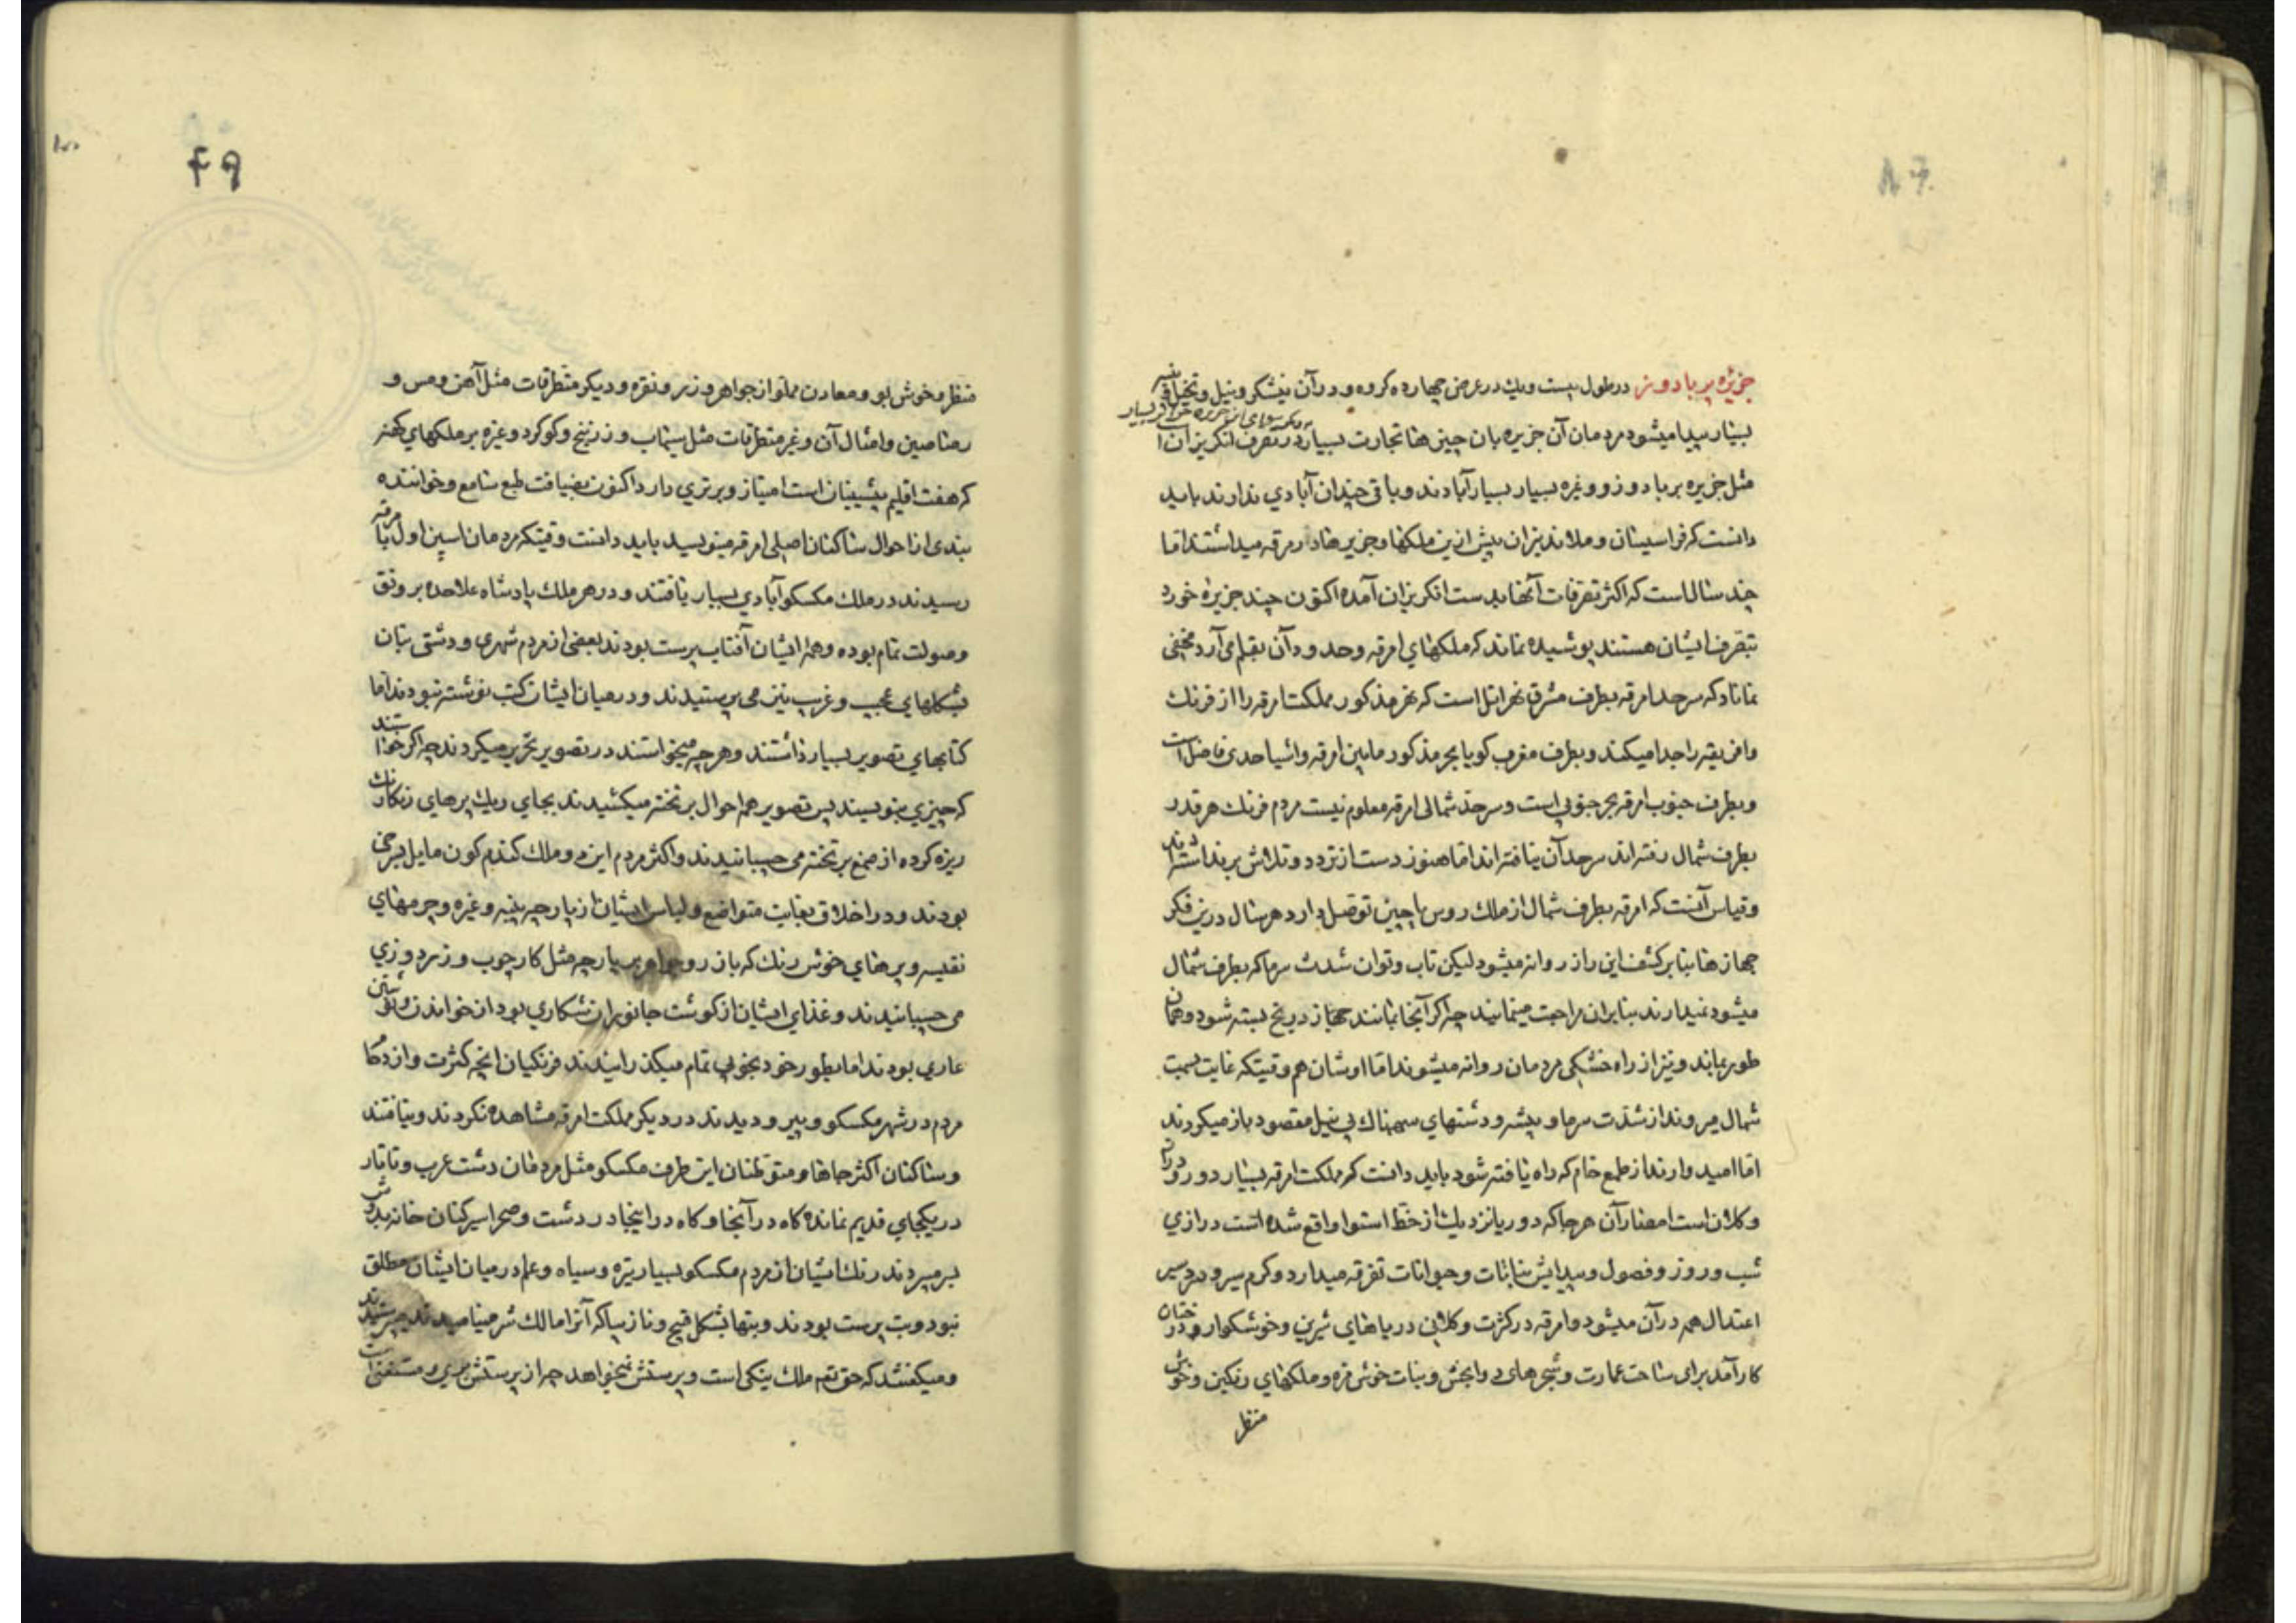 جزیره بربادوز در طول بیست ویک در عرض چهارده کروه و در آن نیشکر و نیل و نخیل
بسیار پیدا میشود مردمان آن جزیره بان چیزها تجارت بسیار در تصرف انگریزان
مثل جزیره بربادوز و وغیره بسیار بسیار آبادند و باقی چندان آبادی ندارند باید
دانست که فراسیسان و ولاندیزان پیش ازین ملکها و جزیرها در امرقه میداشتند اما
چند سال است که اکثر تصرفات آنها بدست انگریزان آمده اکنون چند جزیره خورد
بتصرف ایشان هستند پوشیده نماند که ملکهای امرقه وحدود آن بقلم می آرد مخفی
نماناد که سرحد امرقه بطرف مشرق بحر اتل است که بحر مذکور مملکت امرقه را از فرنك
وافریقیه را جدا میکند وبطرف مغرب کویا بحر مذکور مابین امرقه واشیا حدی فاضل است
وبطرف جنوب امرقه بحر جنوبی است وسرحد شمالی امرقه معلوم نیست مردم فرنك هر قدر
بطرف شمال رفته اند سرحد آن نیافته اند اما هنوز دست از تردد وتلاش برنداشته اند
وقیاس آنست که امرقه بطرف شمال از ملك روس یا چین توصل دارد هر سال درین فکر
جهازها بنابر کشف این راز روانه میشود لیکن تاب وتوان شدت سرما که بطرف شمال
میشود نمیدارند بنابران مراجعت مینمایند چه اگر آنجا بمانند جهاز در یخ بسته شود وهمان
طور بماند ونیز از راه خشکی مردمان روانه میشوند اما اوشان هم وقتیکه غایت بسمت
شمال میروند از شدت سرما وبیشه ودشتهای سهمناك بی نیل مقصود باز میکردند
اما امیدوارند از طمع خام که راه یافته شود باید دانست که مملکت امرقه بسیار دور ودراز
وکلان است امصار آن هر جا که دور یا نزدیك از خط استوا واقع شده است درازی
شب وروز وفصول وپیدایش نباتات وحیوانات تفرقه میدارد وکرم سیر وسرد سیر
اعتدال همه در آن میشود وامرقه در کثرت وکلانی دریاهای شیرین وخوشکوار ودرختان
کارآمد برای ساخت عمارت وشجرهای دوابخش ونبات خوش مزه وملکهای رنکین وخوش
منظر
۴۹
منظر وخوش بو ومعادن مملو از جواهر وزر ونقره ودیکر متطرقات مثل آهن ومس و
رصاصین وامثال آن وغیر متطرقات مثل سیماب وزرنیخ وکوکرد وغیره بر ملکهای کهنه
که هفت اقلیم پیشینیان است امتیاز وبرتری دارد اکنون بضیافت طبع سامع وخواننده
بندی از احوال ساکنان اصلی امرقه مینویسد باید دانست وقتیکه مردمان اسپین اول بامرقه
رسیدند در ملك مکسکو آبادی بسیار یافتند ودر هر ملك پادشاه علاحده برونق
وصولت تمام بوده وهمه ایشان آفتاب پرست بودند بعضی از مردم شهری ودشتی بتان
بشکلهای عجیب وغریب نیز می پرستیدند ودر میان ایشان کتب نوشته نبودند اما
کتابهای تصویر بسیار داشتند وهر چه میخواستند در تصویر تحریر میکردند چه اگر خواستند
که چیزی بنویسند پس تصویر هم احوال بر تخته میکشیدند بجای ریك پرهای رنکارنك
ریزه کرده از صمغ بر تخته می چسبانیدند واکثر مردم این دو ملك کندم کون مایل بسرخی
بودند ودر اخلاق بغایت متواضع ولباس ایشان از پارچه پنبه وغیره وچرمهای
نفیسه وپرهای خوش رنك که باز رو جواهر بر پارچه مثل کارچوب وزردوزی
می چسبانیدند وغذای ایشان از کوشت جانوران شکاری بود از خواندن ونوشتن
عاری بودند اما بطور خود بخوبی تمام میکذرانیدند فرنکیان آنچه کثرت وازدحام
مردم در شهر مکسکو وپیرو دیدند در دیکر مملکت امرقه مشاهده نکردند ونیافتند
وساکنان اکثر جاها ومتوطنان این طرف مکسکو مثل مردمان دشت عرب وتاتار
در یکجای قدیم نمانده کاه در آنجا وکاه در اینجا در دشت وصحرا سیر کنان خانه بدوش
بسر میبردند رنك ایشان از مردم مکسکو بسیار تیره وسیاه وعلم در میان ایشان مطلق
نبود وبت پرست بودند وبتها بشکل قبیح ونازیبا که آنرا مالك شر مینامیدند میپرستیدند
ومیکفتند که حق تعم ملك نیکی است وپرستش نمیخواهد چه از پرستش بری ومستغنی است